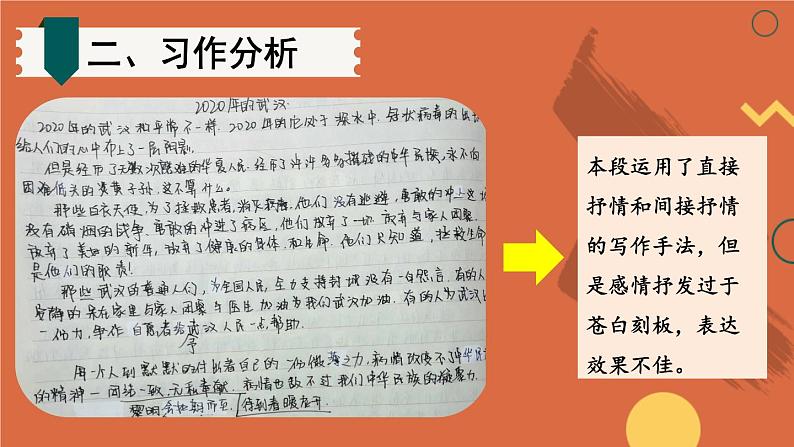 二、习作分析
2020年的武汉
2020年的武汉和平常不一样. 2020年的它处于深水中. 冠状病毒的出
给人们的心中布上了一层阴影.
但是经历了无数次磨难的华夏人民. 经历了许许多多摧残的中华民族, 永不向
困难低头的炎黄子孙. 这不算什么。
那些白衣天使. 为了拯救患者, 消灭病毒, 他们没有逃避, 勇敢的冲上这场
没有硝烟的战争. 勇敢的冲进了病区, 他们放弃了一切. 放弃与家人团聚.
放弃了美好的新年, 放弃了健康的身体. 和生命. 他们只知道, 拯救生命
是他们的职责!
那些武汉的普通人们, 为全国人民, 全力支持封城没有一句怨言. 有的人
安静的呆在家里与家人团聚与医生加油为我们武汉加油. 有的人为武汉出
一份力, 争作自愿者给予武汉人民一点帮助.
每一力人到默默的付出着自己的一份微薄之力, 病情改变不了中华民
的精神一团结一致. 无私奉献. 病情也敌不过我们中华民族的凝聚力.
黎明会如期而至, 待到春暖花开.
本段运用了直接
抒情和间接抒情
的写作手法，但
是感情抒发过于
苍白刻板，表达
效果不佳。